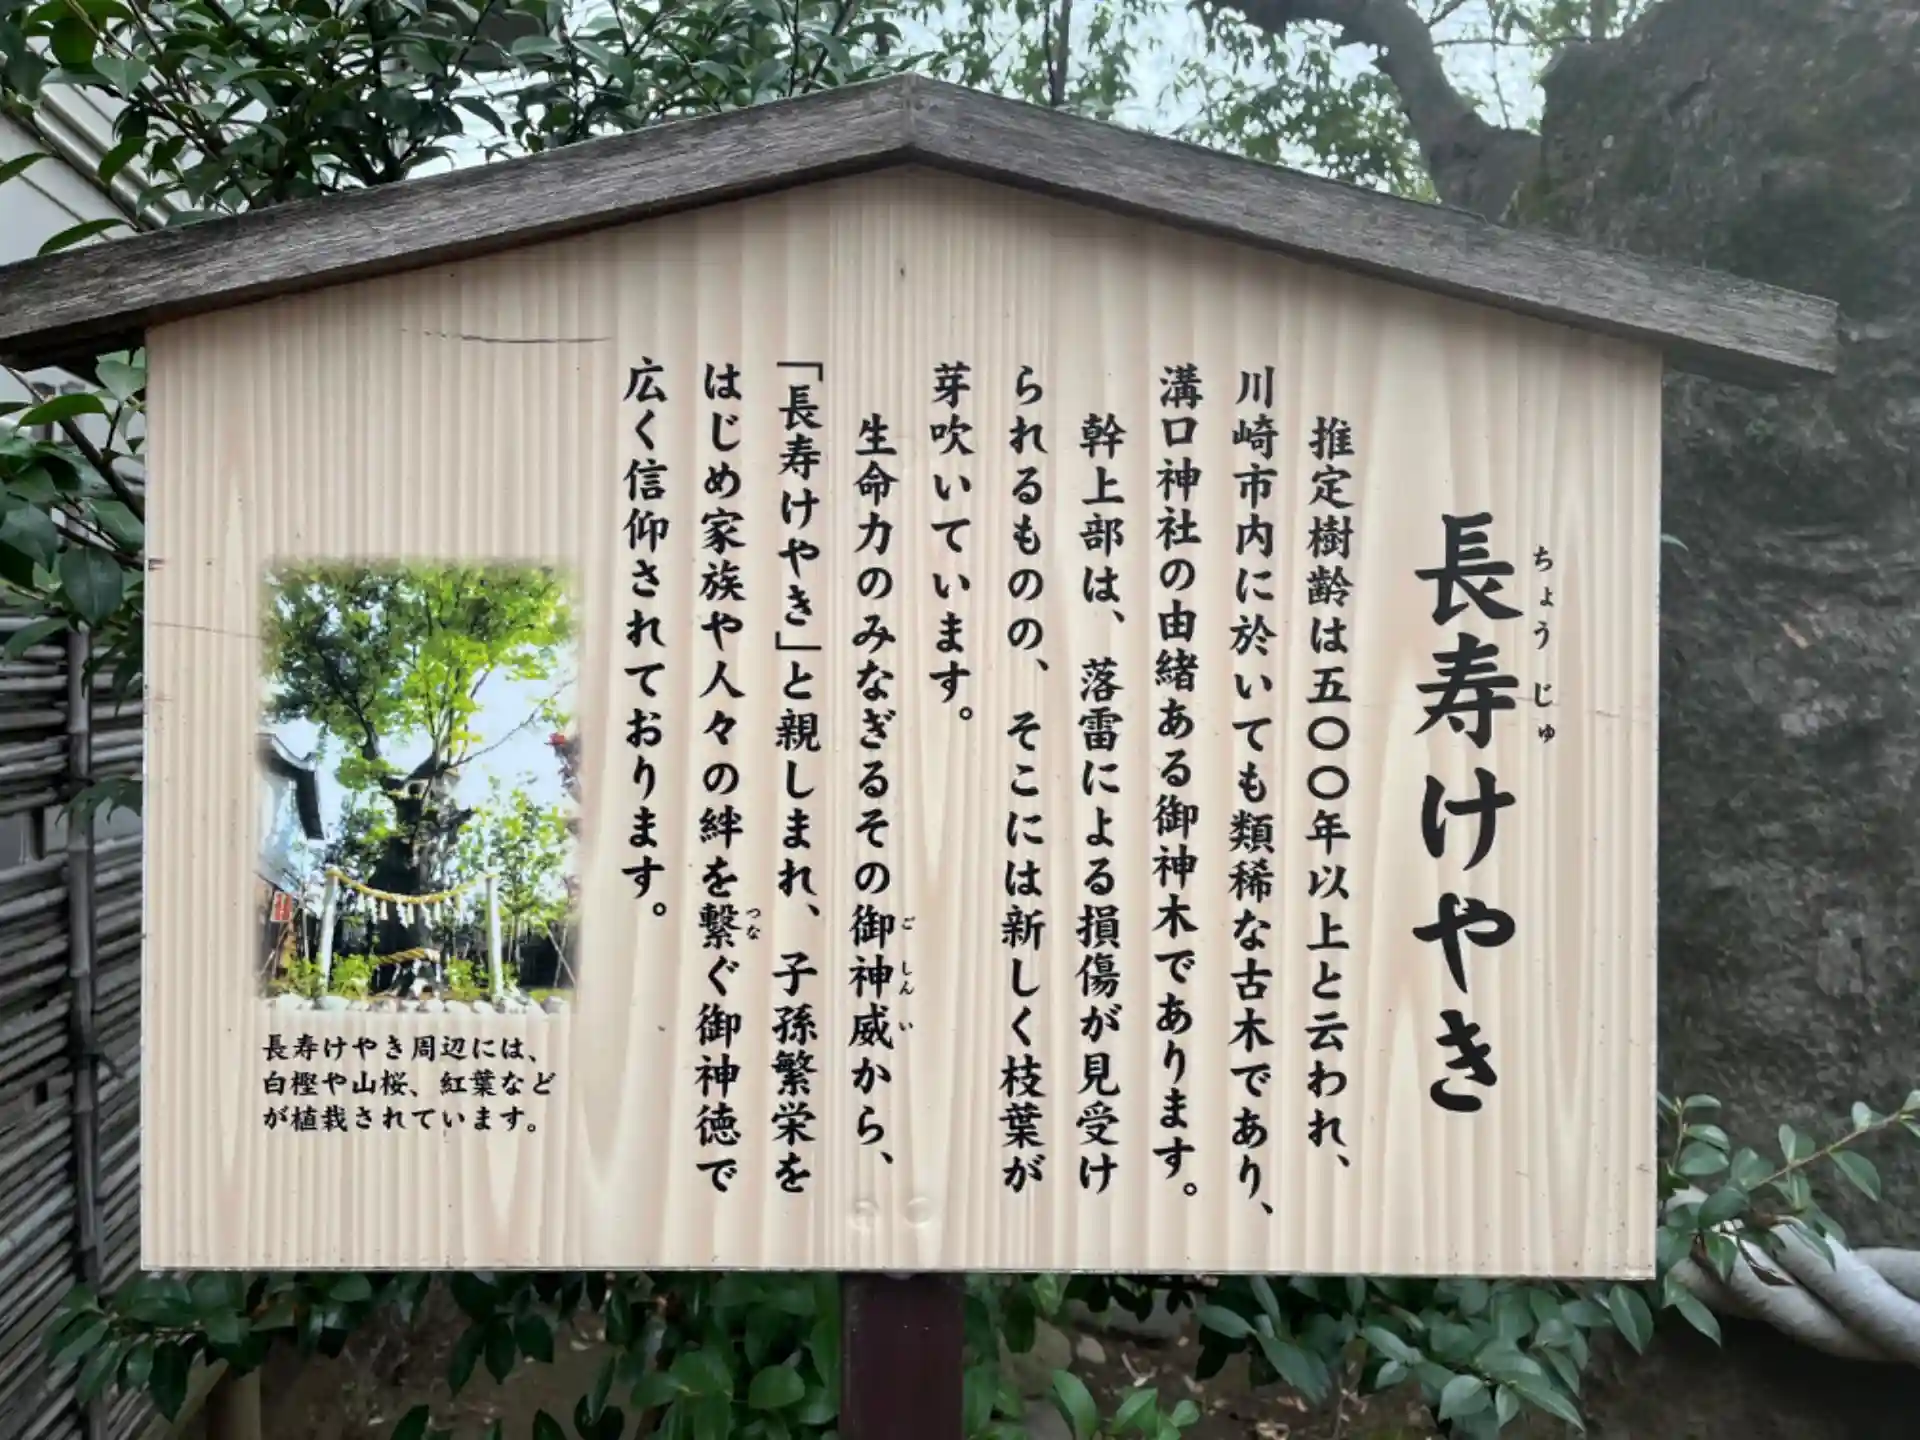 長寿けやき
ちょうじゅ
推定樹齢は五〇〇年以上と云われ、
川崎市内に於いても類稀な古木であり、
溝口神社の由緒ある御神木であります。
幹上部は、落雷による損傷が見受け
られるものの、そこには新しく枝葉が
芽吹いています。
生命力のみなぎるその御神威から、
ごしんい
「長寿けやき」と親しまれ、子孫繁栄を
はじめ家族や人々の絆を繋ぐ御神徳で
つな
広く信仰されております。
長寿けやき周辺には、
白樫や山桜、紅葉など
が植栽されています。